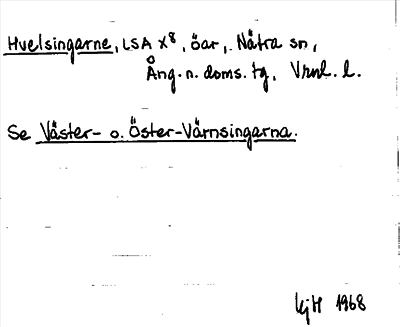 Hvelsingarne, LSA X8, öar, Nätra sn,
Ång. n. doms. tg, Vrnl. l.
Se Väster- o. Öster-Värnsingarna.
KjH 1968